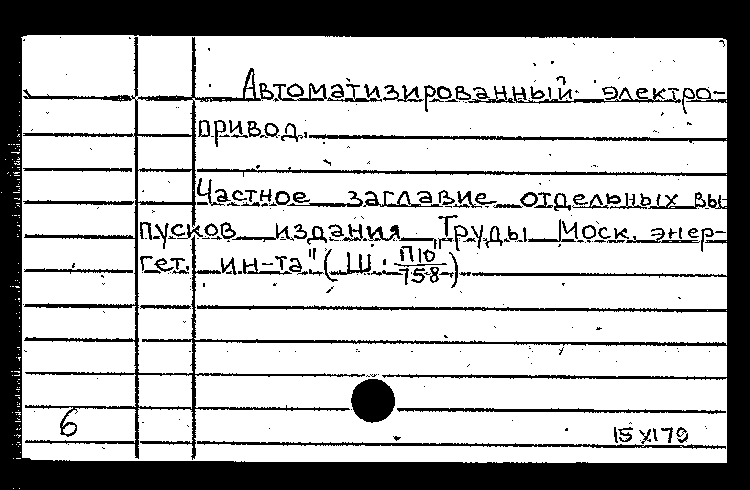 Автоматизированный электро-
привод.
Частное заглавие отдельных вы-
пусков издания "Труды Моск. энер-
гет. ин-та" (Ш. П10/758)
6
15 XI 70